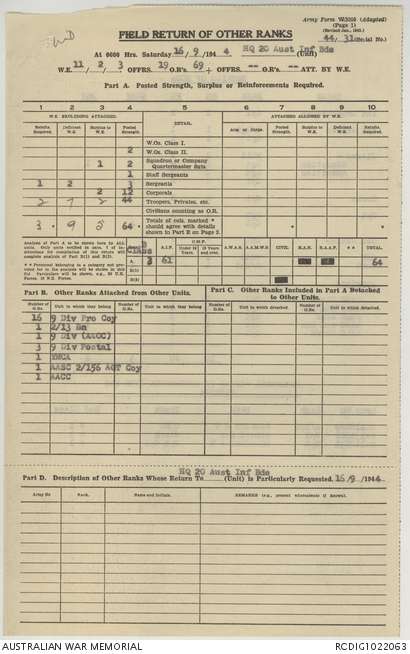 Army Form W.3008 (Adapted)
(Page 1)
FIELD RETURN OF OTHER RANKS
44 / 31 (Serial No.)
At 0600 Hrs. Saturday 16 / 9 /194 4 HQ 20 Aust Inf Bde (Unit)
W.E. 11 / 2 / 3 OFFRS. 19 O.R's. 69 + OFFRS. — OR's— ATT. BY W.E.
Part A. Posted Strength, Surplus or Reinforcements Required.
1 2 3 4 5 6 7 8 9 10
W.E. EXCLUDING ATTACHED. ATTACHED ALLOWED BY W.E.
Reinfts. Required. Deficient W.E. Surplus to W.E. Posted Strength DETAIL Arm or Corps. Posted Strength. Surplus to W.E. Deficient W.E. Reinfts. Required.
W.Os. Class I.
2 W.Os. Class II.
1 2 Squadron or Company Quartermaster Sgts.
1 Staff Sergeants
1 2 3 Sergeants
2 12 Corporals
2 7 2 44 Troopers, Privates, etc.
Civilians counting as O.R.
3 * 9 5 64 * Totals of cols. marked * should agree with details shown in Part E on Page 3.
B CLASS A.I.F. C.M.F. A.W.A.S. A.A.M.W.S. CIVIL R.A.N. R.A.A.F. * * TOTAL.
A. 3 61 64
B(1)
B(3)
Part B. Other Ranks Attached from Other Units.
Part C. Other Ranks Included in Part A Detached to Other Units.
Number of O.Rs. Unit to which they belong Number of O.Rs. Unit to which they belong Number of O.Rs. Unit to which detached. Number of O.Rs. Unit to which detached.
16 9 Div Pro Coy
1 2/13 Bn
1 9 Div (AAOC)
3 9 Div Postal
1 YMCA
1 AASC 2/156 AGT Coy
1 AACC
HQ 20 Aust Inf Bde
Part D. Description of Other Ranks Whose Return To (Unit) is Particularly Requested. 16 / 9 /1944.
Army No Rank. Name and Initials. REMARKS (e.g., present whereabouts if known).
AUSTRALIAN WAR MEMORIAL RCDIG1022063